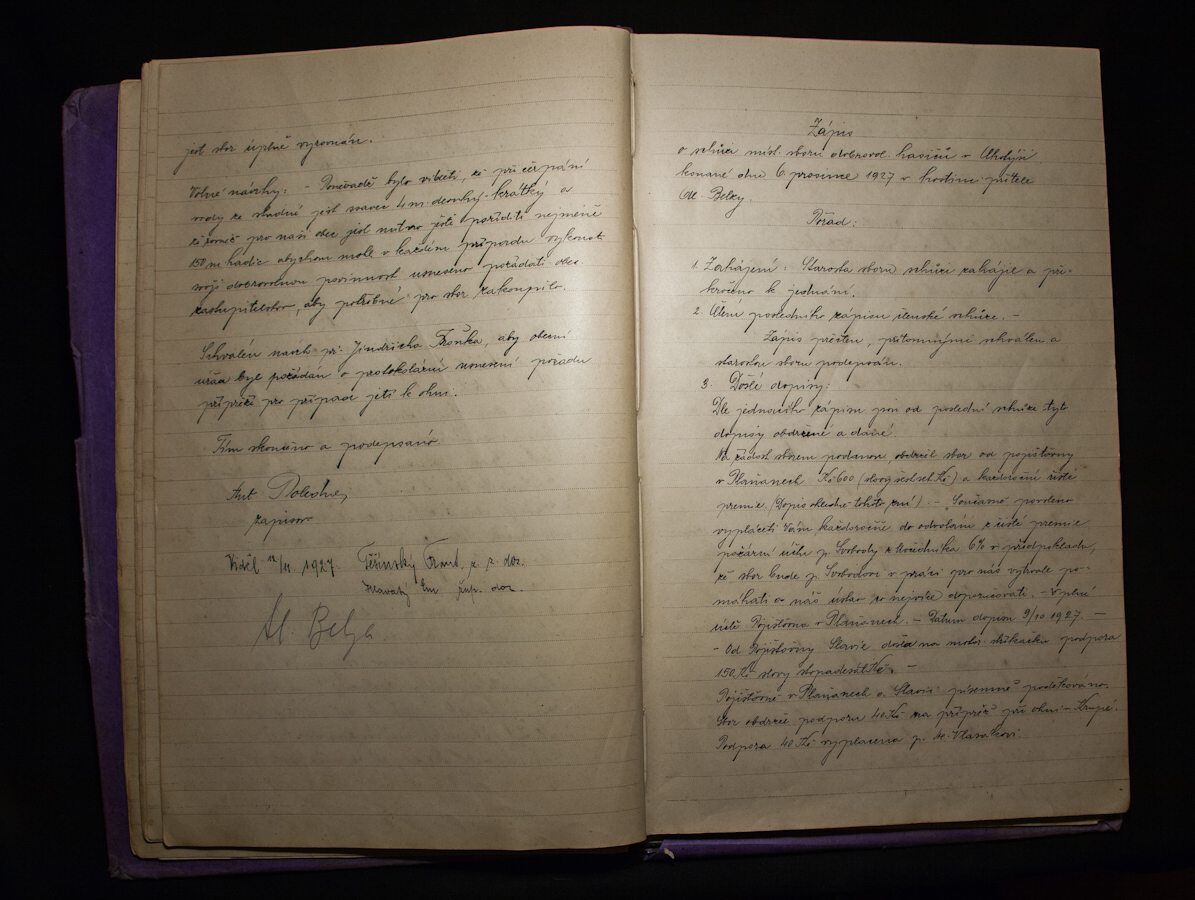 jest sbor úplně vyrovnán.
Volné návrhy: - Poněvadž bylo viděti, že při čerpání
vody ze studně jest savec 4 m. dlouhý krátký a
že pro naši obec jest nutno ještě poříditi nejméně
150 m hadic abychom mohli v každém případu vykonat
svoji dobrovolnou povinnost usneseno požádati obec.
zastupitelstvo, aby potřebné pro sbor zakoupilo.
Schválen návrh př. Jindřicha Fröňka, aby obecní
úřad byl požádán o protokolární usnesení pořadu
přípřeží pro případ jetí k ohni.
Tím skončeno a podepsáno.
Ant Polední
zapisov.
Viděl 12/11. 1927. Těšínský Frant. z. z. doz.
Hlavatý žup. doz.
Al. Belza
Zápis
o schůzi míst. sboru dobrovol. hasičů v
konané dne 6. prosince 1927 v hostinci přítele
Al. Belzy.
Pořad:
1. Zahájení: Starosta sboru schůzi zahájil a při-
kročeno k jednání.
2. Čtení posledního zápisu členské schůze. -
Zápis přečten, přítomnými schválen a
starostou sboru podepsán.
3. Došlé dopisy:
Dle jednacího zápisu jsou od poslední schůze tyto
dopisy obdržené a dané.
Na žádost sborem podanou, obdržel sbor od pojišťovny
v Plaňanech Kč 600 (slovy šestset Kč) a každoroční úctě
premie (Dopis ohledně tohoto zní) - Současně povoleno
vypláceti Vám každoročně do odvolání z úctě premie
požární účtu p. Svobody z 6% v předpokladu,
že sbor bude p. Svobodovi v práci pro nás vytrvale po-
máhati a náš ústav co nejvíce doporučovati. - V plné
úctě Pojišťovna v Plaňanech. - Datum dopisu 3/10 1927. -
- Od Pojišťovny Slavie došla na motor. stříkačku podpora
150 Kč slovy stopadesát Kč. -
Pojišťovně v Plaňanech a Slavii písemně poděkováno.
Sbor obdržel podporu 40 Kč na přípřež při ohni - Krupé.
Podpora 40 Kč vyplacena p. Vlasákovi